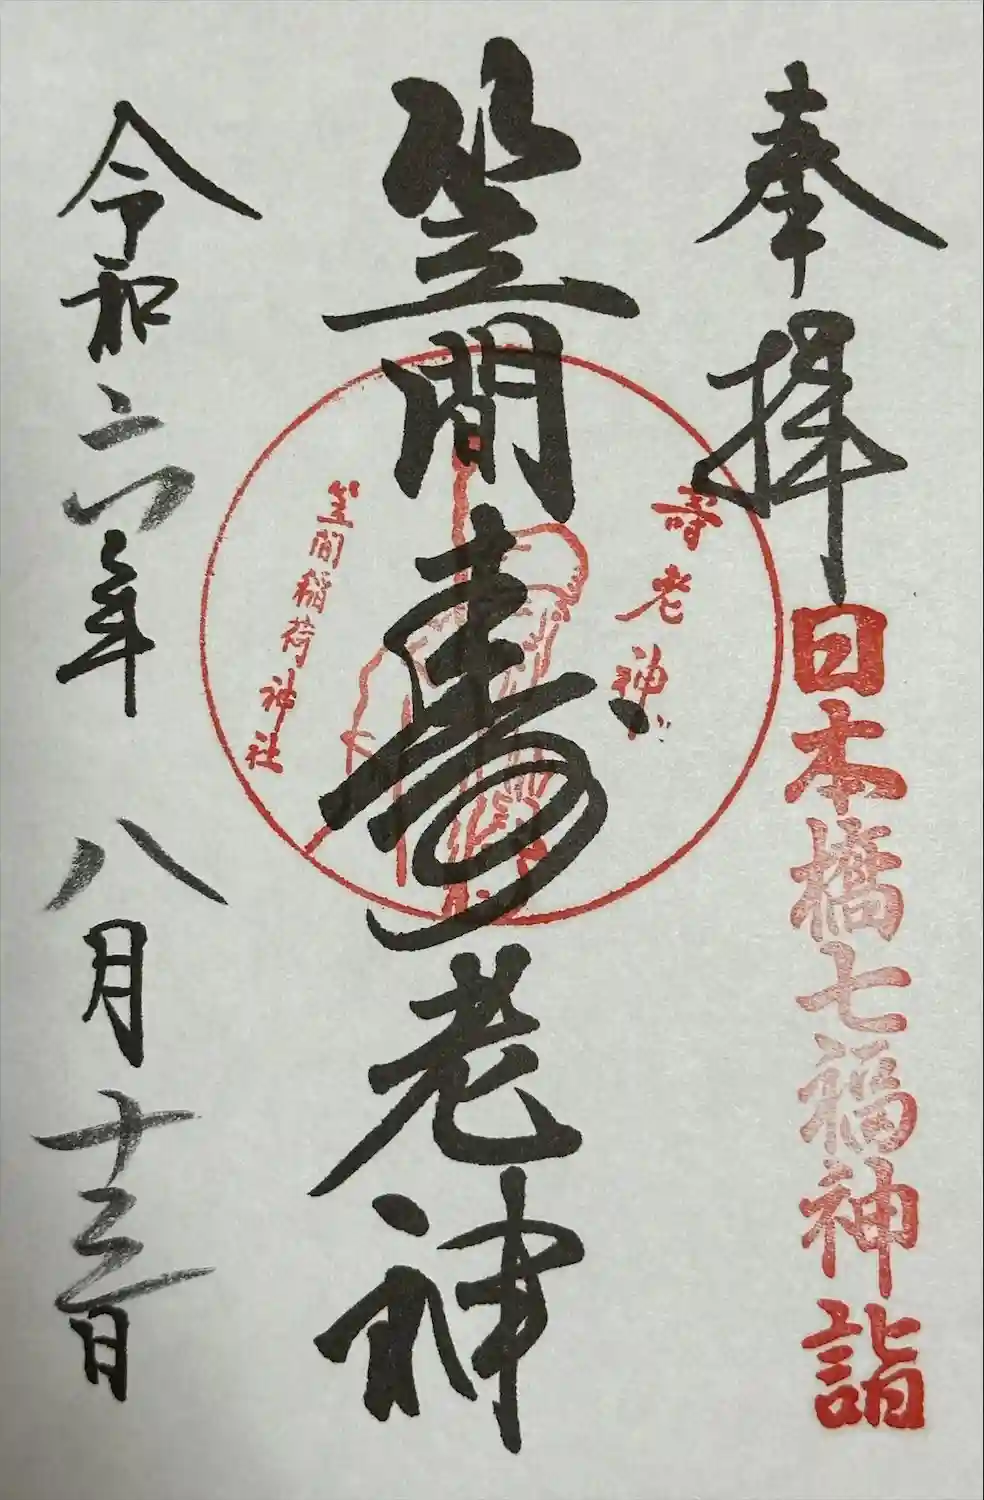 奉拝
日本橋七福神詣
笠間寿老神
壽老神
笠間稲荷神社
令和六年八月十三日